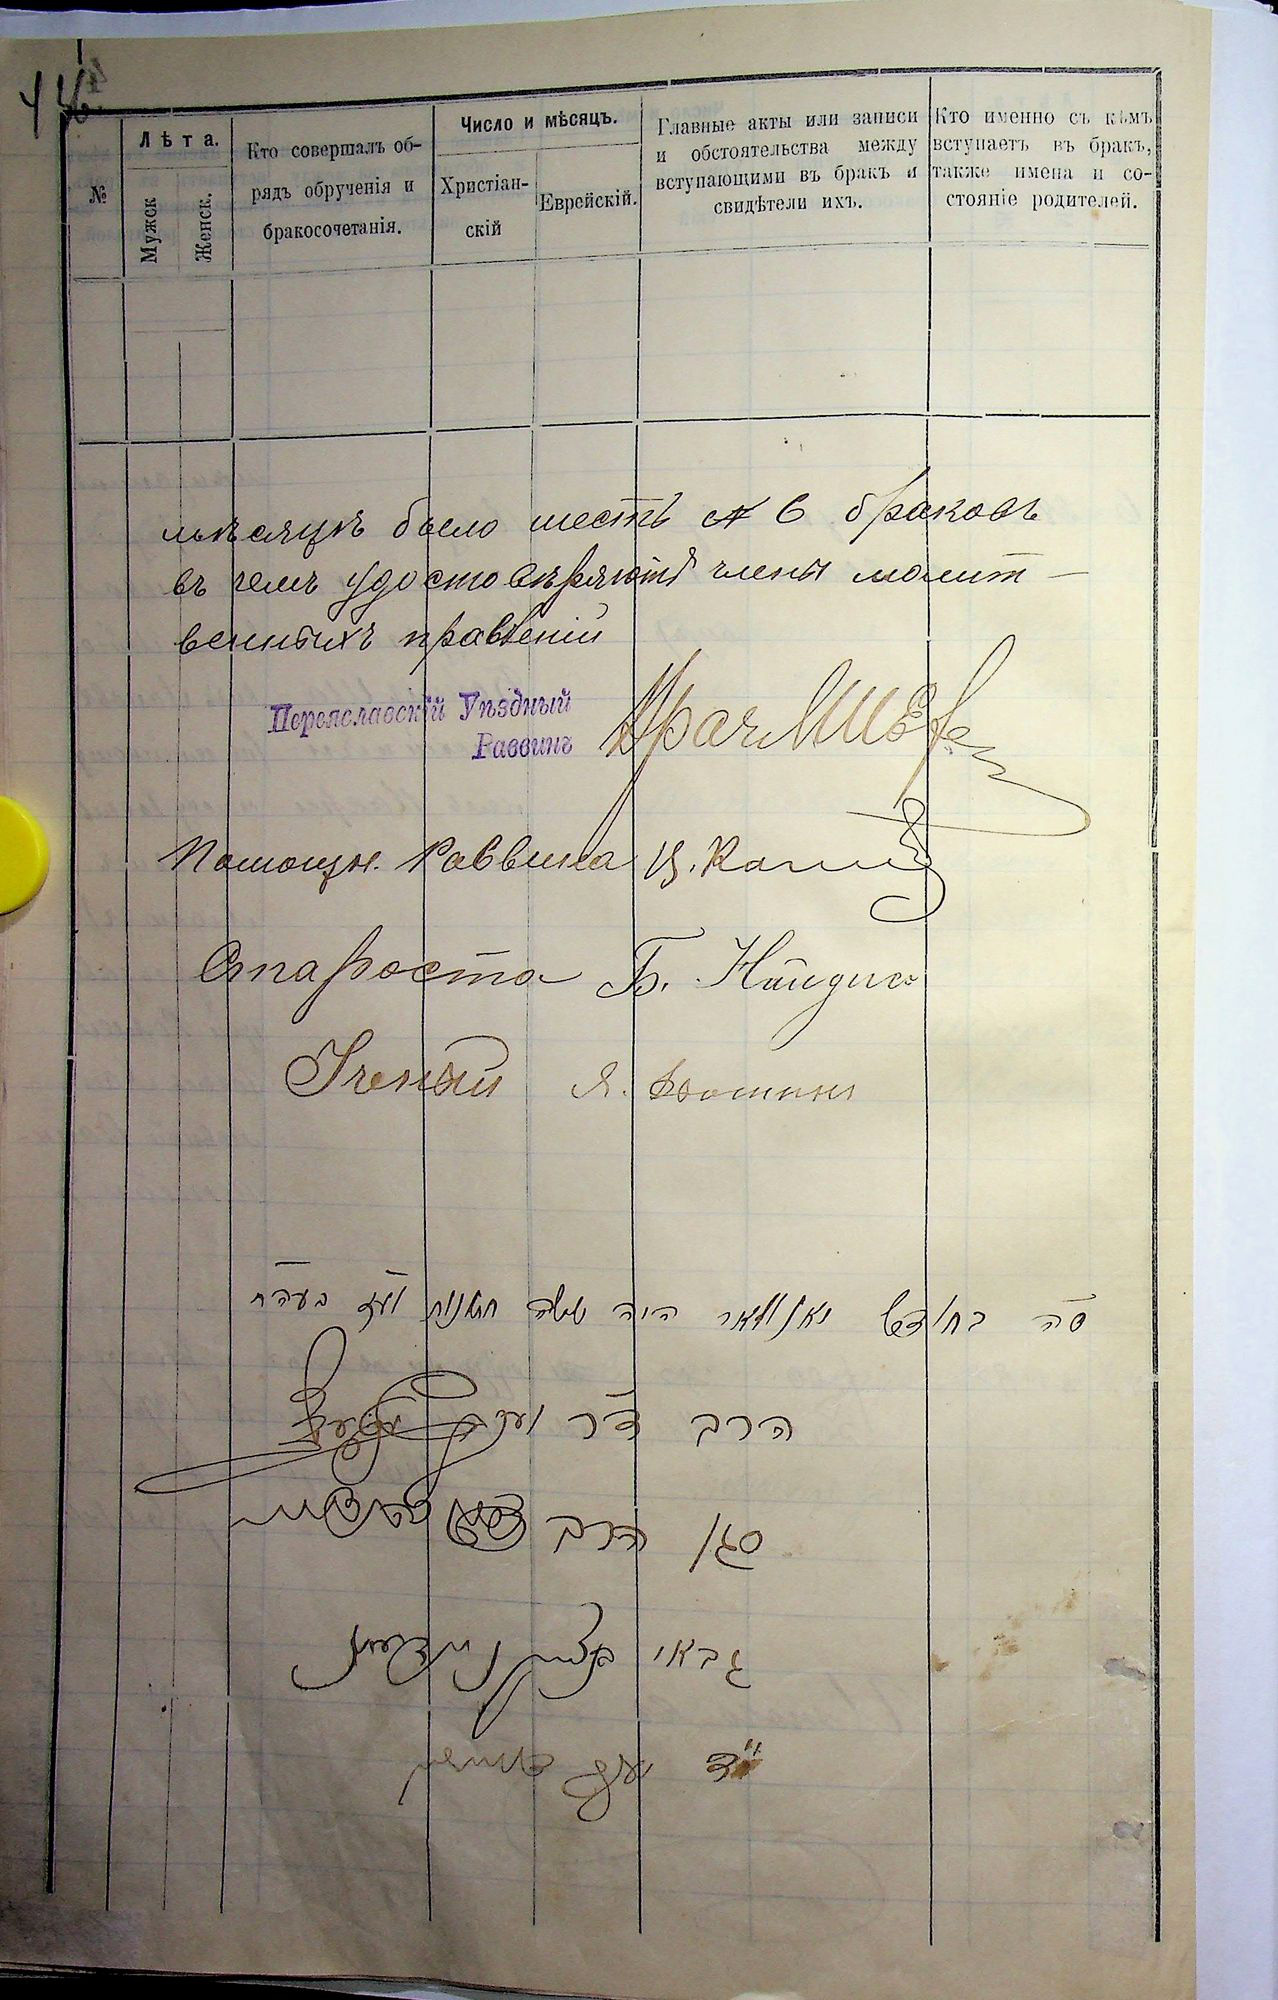 №
Лѣта.
Мужск
Женск.
Кто совершалъ об-
рядъ обрученія и
бракосочетанія.
Число и мѣсяцъ.
Христіан-
скій
Еврейскій.
Главные акты или записи
и обстоятельства между
вступающими въ бракъ и
свидѣтели ихъ.
Кто именно съ кѣмъ
вступаетъ въ бракъ,
также имена и со-
стояніе родителей.
мѣсяцѣ было шесть № 6 браковъ
въ чемъ удостовѣряютъ члены молит-
венныхъ правленій
Переяславскій Уѣздный
Раввинъ
Врачъ
Помощн. Раввина
Староста Б. Найдисъ
Ученый Я.
סה בחודש יאנוואר היה ששה חתונות
הרב דר
סגן הרב
גבאי